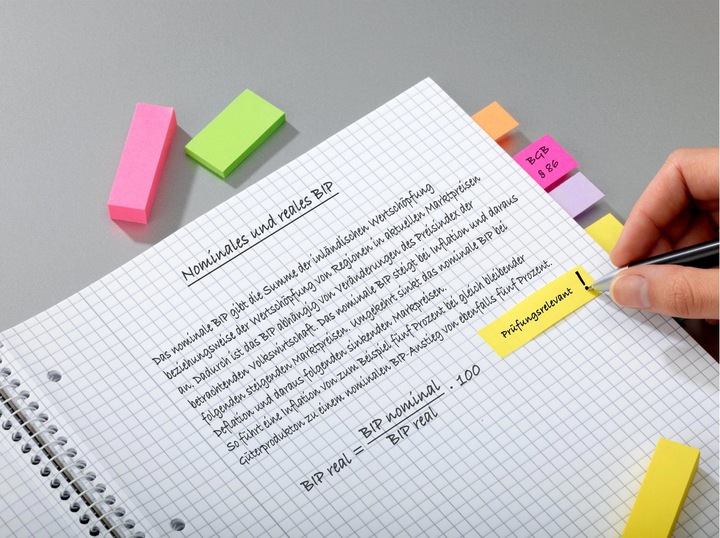 Nominales und reales BIP
Das nominale BIP gibt die Summe der inländischen Wertschöpfung
beziehungsweise der Wertschöpfung von Regionen in aktuellen Marktpreisen
an. Dadurch ist das BIP abhängig von Veränderungen des Preisindex der
betrachtenden Volkswirtschaft. Das nominale BIP steigt bei Inflation und daraus
folgenden steigenden Marktpreisen. Umgekehrt sinkt das nominale BIP bei
Deflation und daraus folgenden sinkenden Marktpreisen.
So führt eine Inflation von zum Beispiel fünf Prozent bei gleich bleibender
Güterproduktion zu einem nominalen BIP-Anstieg von ebenfalls fünf Prozent.
BIP real = BIP nominal / BIP real · 100
Prüfungsrelevant !
BGB
§ 86